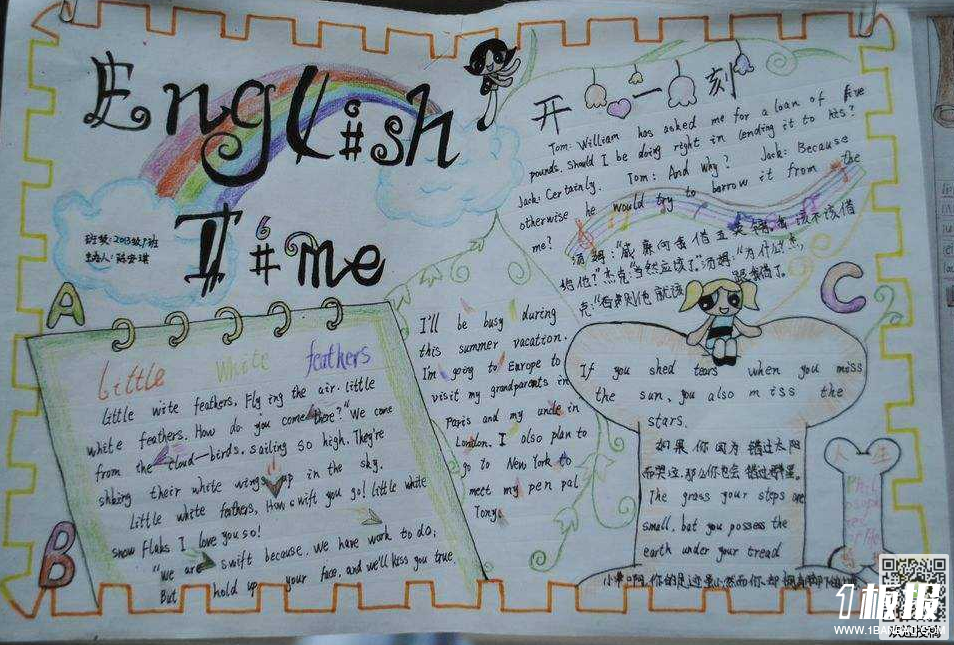 English
T#me
班级：2013级1班
A
Little White feathers
Little wite feathers, Flying the air. little
white feathers. How do you come here?" We come
from the cloud—birds, sailing so high. They're
shking their white wings up in the sky.
Little white feathers, How swift you go! little white
snow Flaks I love you so!
"We are swift because, we have work to do;
But hold up your face, and we'll kiss you true.
B
I'll be busy during
this summer vacation.
I'm going to Europe to
visit my grandparents in
Paris and my uncle in
London. I also plan to
go to New York to
meet my pen pal
Tony.
开心一刻
Tom: William has asked me for a loan of five
pounds. Should I be doing right in lending it to his?
Jack: Certainly. Tom: And why? Jack: Because
otherwise he would try to borrow it from the
me?
汤姆："威廉向我借五英镑，我该不该借
给他？"杰克"当然应该了。"汤姆："为什么"杰
克："否则他就该跟我借了。
C
If you shed tears when you miss
the sun, you also miss the
stars.
如果你因为错过太阳
而哭泣，那么你也会错过群星。
The grass your steps are
small, but you possess the
earth under your tread
小草啊，你的足迹虽小，然而你却拥有脚下的
人生
Phil
osoph
of life
1板报
WWW.1BANBAO.COM
欢迎投稿